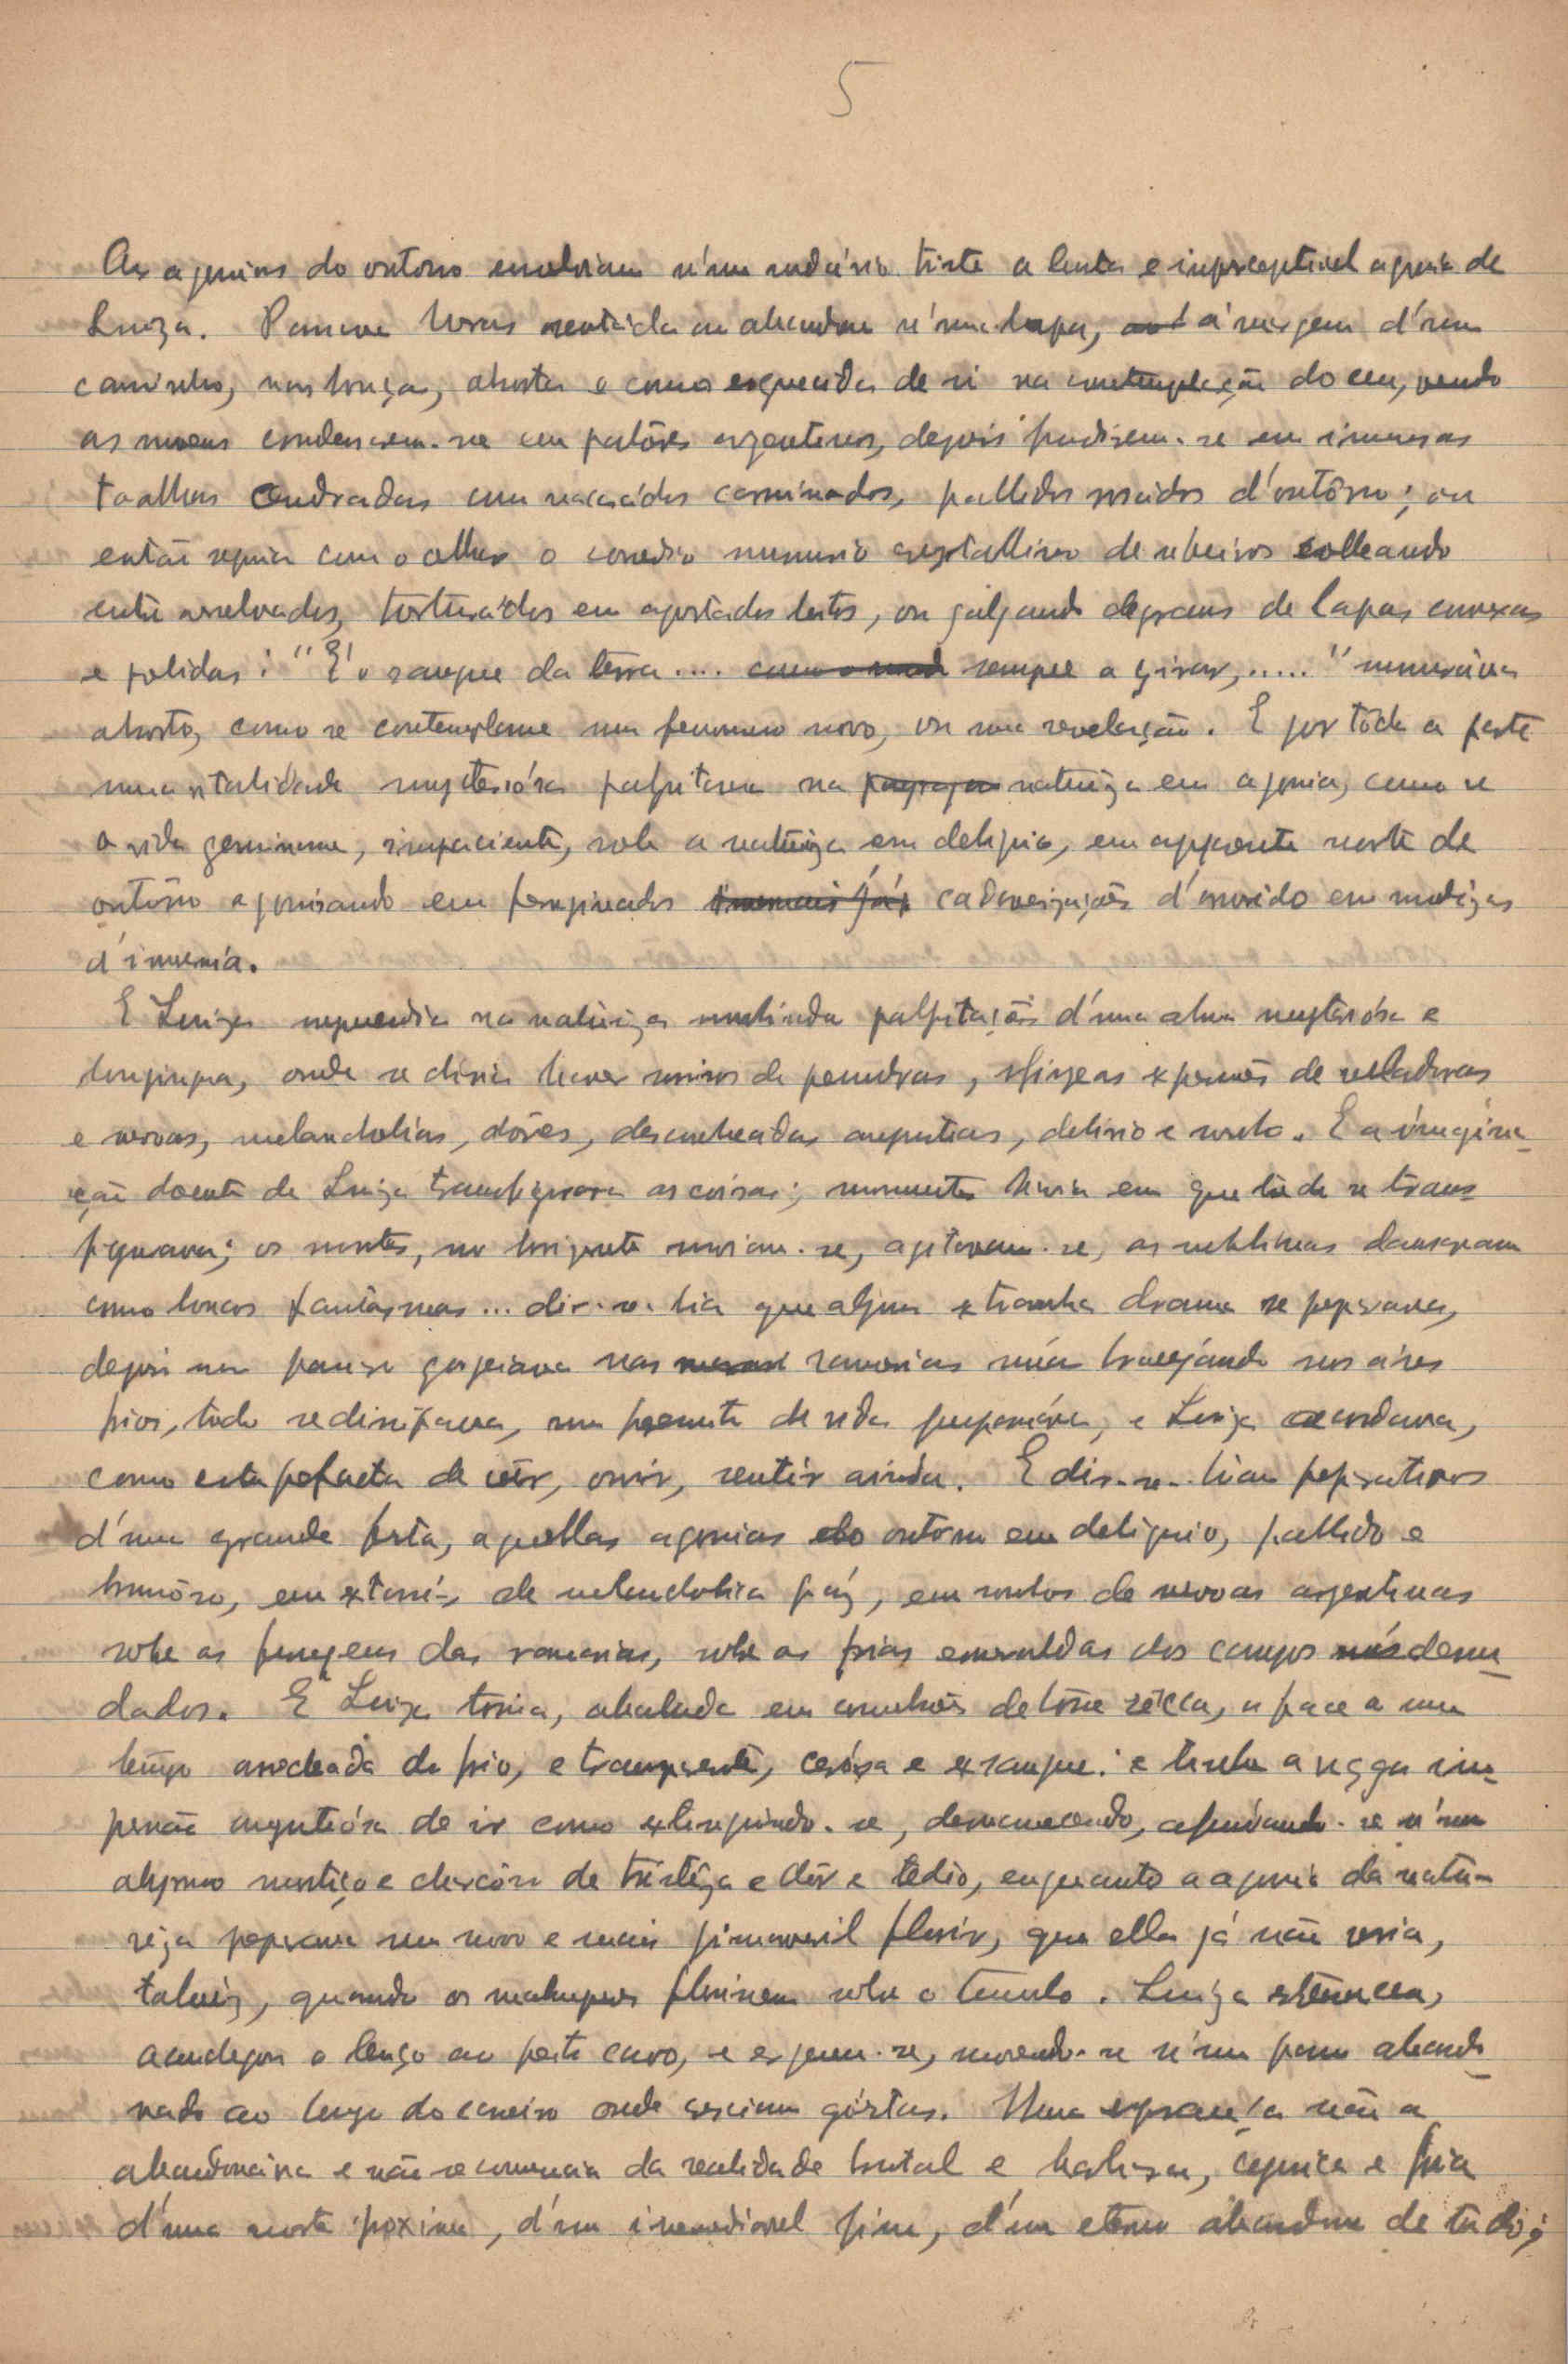 5
As agonias do outono envolviam n'um sudário triste a lenta e imperceptivel agonia de
Luiza. Passava horas sentada ao abandono n'uma lapa, á margem d'um
caminho, nas bouças, absorta e como esquecida de si na contemplação do ceu, vendo
as nuvens condensarem-se em argenteos, depois fundirem-se em imensas
toalhas com nacarados carminados, pallidos rosados d'outôno; ou
então seguia com o olhar o murmurio crystallino de ribeiros colleando
entre torturádos em apertados leitos, ou galgando degraus de lapas convexas
e polidas: "É o sangue da terra.... como o sempre a girar,....." murmuráva
absorta, como se contemplasse um fenomeno novo, ou uma revelação. E por tôda a parte
uma vitalidade mysteriósa palpitava na natureza em agonia, como se
a vida germinasse, impaciente, sob a natureza em deliquio, em apparente morte de
outôno agonisando em cadaverisações d'
d'
E Luiza surprendia na natureza palpitações d'uma alma mysteriósa e
longinqua, onde se diria haver risos de penumbras, de
e nevoas, melancholias, dôres, desconhecidas angustias, delirio e sonho. E a imagina-
ção doente de Luiza transfigurava as coisas; momentos havia em que tudo se trans-
figurava; os montes, no horizonte moviam-se, agitavam-se, as neblinas dansavam
como loucos fantasmas... dir-se-hia que algum extranho drama se preparava,
depois um passaro gorgeiava nas ramarias núas bracejando nos ares
frios, tudo se dissipava, um fremito de vida perpassáva, e Luiza acordava,
como estupefacta de vêr, ouvir, sentir ainda. E dir-se-hiam preparativos
d'uma grande festa, aquellas agonias do outôno em deliquio, pallido e
brumôso, em de melancholica páz, em sonhos de nevoas argentinas
sobre as das ramarias, sobre as frias esmeraldas dos campos desnu-
dados. E Luiza tossia, abalada em convulsões de tosse sêcca, a face a um
tempo do frio, e transparente, cerósa e exangue: e tinha a vaga im-
pressão angustiósa de ir como extinguindo-se, desvanecendo, afundando-se n'um
abysmo de tristêza e dôr e tedio, enquanto a agonia da natu-
reza preparava um novo e mais primaveril florir, que ella já não veria,
talvêz, quando os malmequeres florissem sobre o tumulo. Luiza estremeceu,
aconchegou o lenço ao peito cavo, e ergueu-se, movendo-se n'um passo abando-
nado ao longo do carreiro onde cresciam giéstas. Uma esperança não a
abandonáva e não se convencia da realidade brutal e cynica e fria
d'uma morte proxima, d'um irremediavel fim, d'um eterno abandono de tudo;